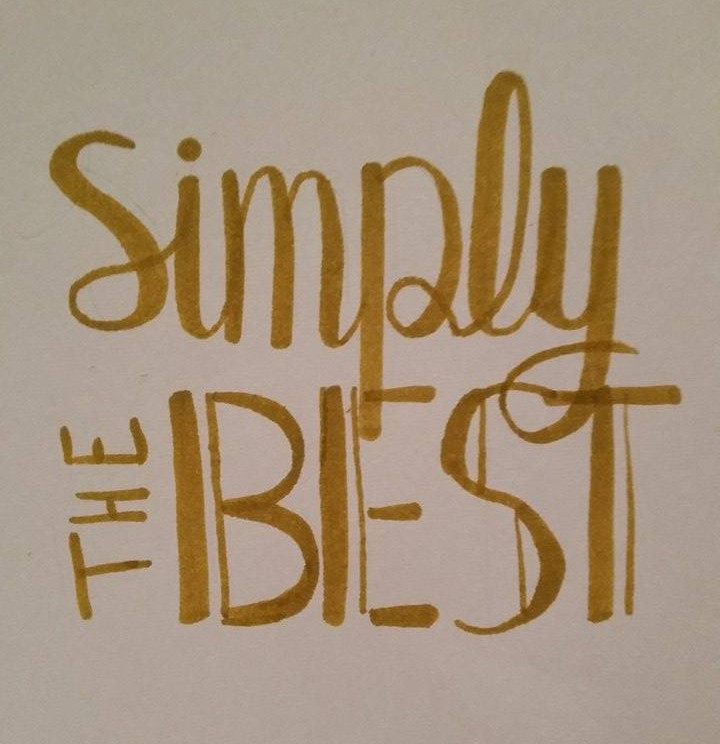 Simply
THE
BEST